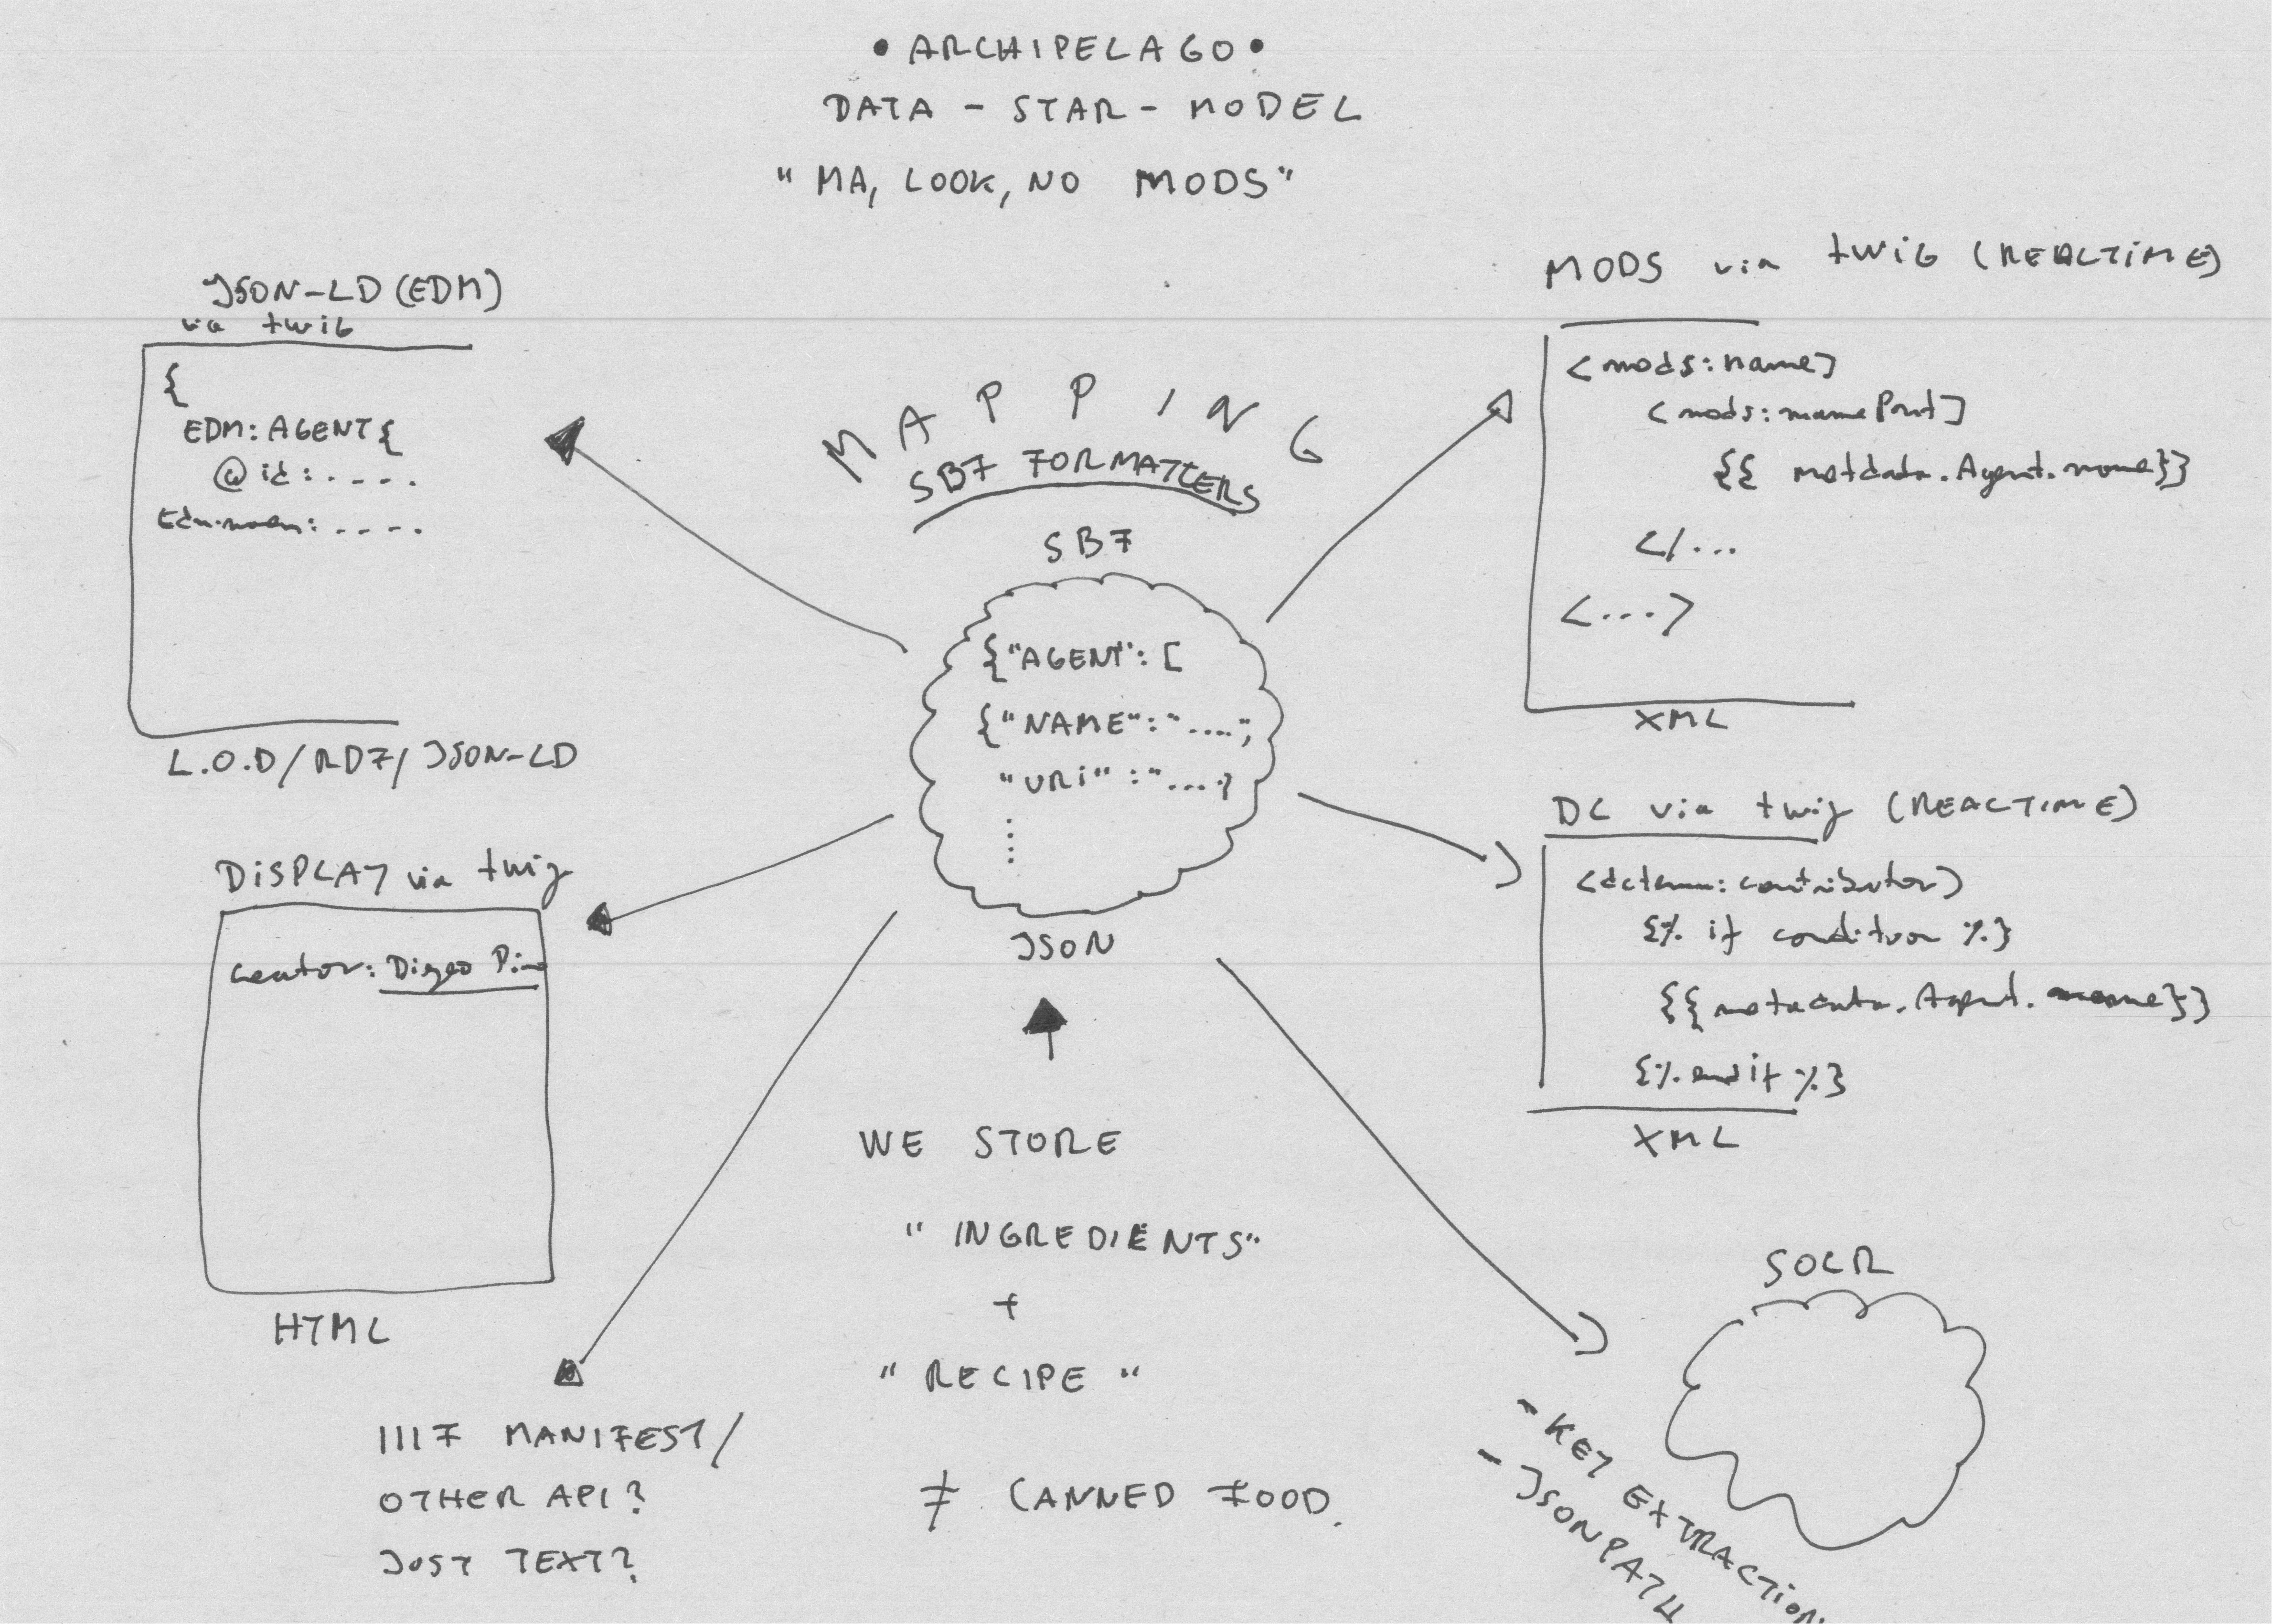 • ARCHIPELAGO •
DATA - STAR - MODEL
" MA, LOOK, NO MODS"
JSON-LD (EDM)
via twig
{
EDM: AGENT {
@id: . - - .
. - - .
L.O.D/RDF/JSON-LD
MAPPING
SBF FORMATTERS
SBF
{"AGENT": [
{"NAME": "....",
"URI" : "....}
JSON
MODS via twig (REALTIME)
<mods:name]
<mods:namePart]
{{ metdata.Agent.name}}
</...
<...>
XML
DISPLAY via twig
Creator: Diego Pino
HTML
DC via twig (REALTIME)
<dcterms: contributor>
{% if condition %}
{{metadata.Agent.name}}
{% endif %}
XML
WE STORE
" INGREDIENTS"
+
" RECIPE "
≠ CANNED FOOD.
IIIF MANIFEST/
OTHER API?
JUST TEXT?
SOLR
- KEY EXTRACTION
- JSONPATH